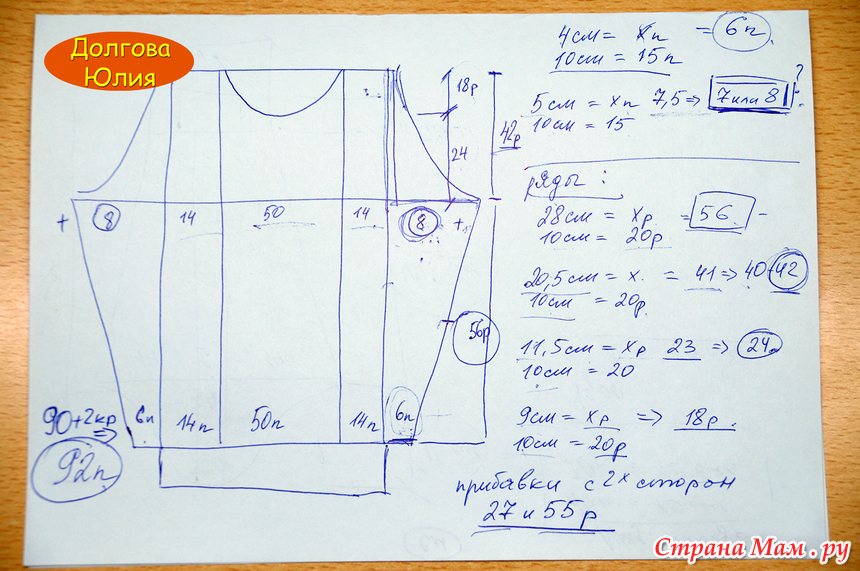 Долгова
Юлия
4см = хп = 6п
10см = 15п
5см = хп 7,5 => 7 или 8 ?
10см = 15
ряды:
28см = хр = 56 -
10см = 20р
20,5см = х. = 41 => 40-42
10см = 20р
11,5см = хр 23 => 24
10см = 20
9см = хр => 18р.
10см = 20р
прибавки с 2х сторон
27 и 55р
18р
42р
24
+ 8 14 50 14 8 +
56р
90+2кр =>
92п
6п 14п 50п 14п 6п
Страна Мам.ру